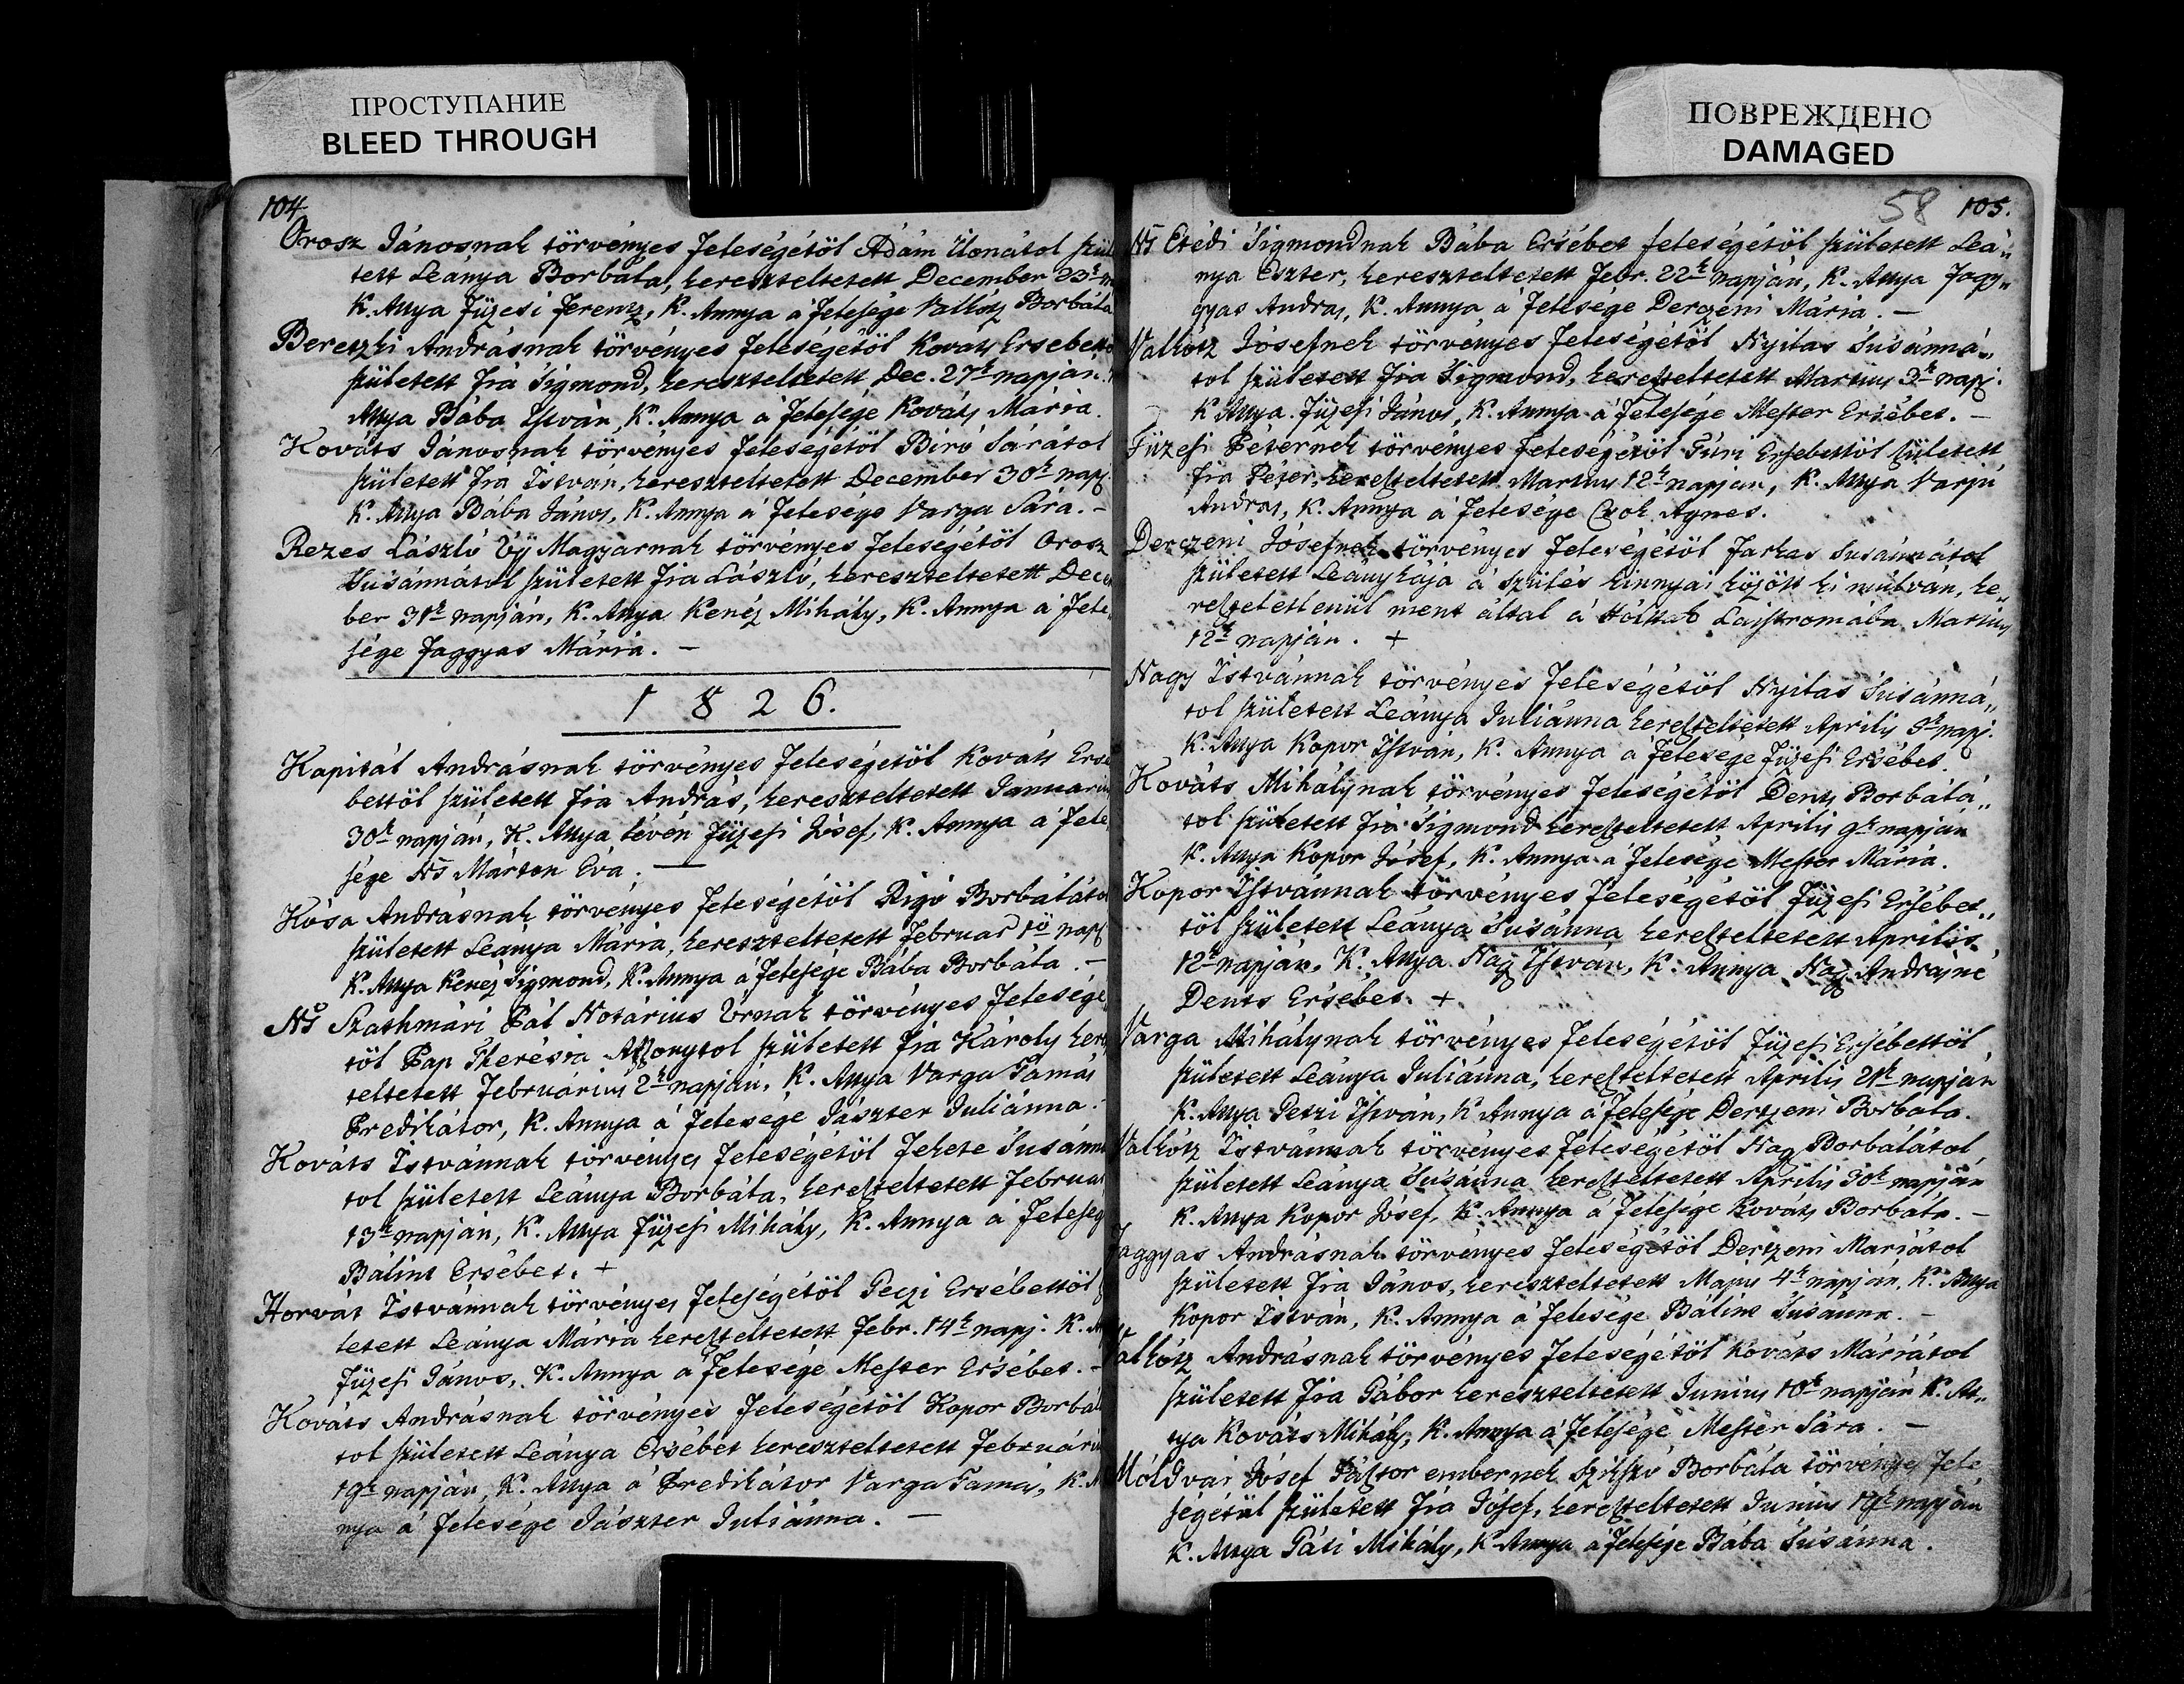 ПРОСТУПАНИЕ
BLEED THROUGH
ПОВРЕЖДЕНО
DAMAGED
104
Orosz Jánosnak törvényes Feleségétöl Ádám Ilonátol Szül
tett Leánya Borbála, kereszteltetett December 23k
K. Attya Füzesi Ferencz, K. Annya a Felesége Valkótz Borbála
Bereczki Andrásnak törvényes Feleségétöl Kováts Ersebett
született Fia Sigmond, kereszteltetett Dec. 27k napján.
Attya Bába István, K. Annya a Felesége Kováts Mária.
Kováts Jánosnak törvényes Feleségétöl Biró Sárátol
született Fia István, kereszteltetett December 30k napj.
K. Attya Bába János, K. Annya á Felesége Varga Sára. –
Rezes László Uj Magyarnak törvényes Feleségétöl Orosz
Susánnátol született Fia László, kereszteltetett Decem
ber 31k napján, K. Attya Kenéz Mihály, K. Annya á Fele„
sége Faggyas Mária. –
1826.
Kapitál Andrásnak törvényes Feleségétöl Kováts Erse
bettöl született Fia András, kereszteltetett Januarius
30k napján, K. Attya lévén Füzesi Jósef, K. Annya á Fele
sége Ns Márton Éva. –
Kósa Andrásnak törvényes Feleségétöl Rigó Borbálátol
született Leánya Mária, kereszteltetett Februar 1ö napj
K. Attya Kenéz Sigmond, K. Annya á Felesége Bába Borbála. –
Ns Szathmári Pál Notárius Urnak törvényes Felesége
töl Pap Therésia Aszszonytol született Fia Károly keresz
teltetett Februárius 2k napján, K. Attya Varga Tamás
Predikátor, K. Annya á Felesége Jászter Juliánna. –
Kováts Istvánnak törvényes Feleségétöl Fekete Susánná
tol született Leánya Borbála, kereszteltetett Februar
13k napján, K. Attya Füzesi Mihály, K. Annya á Feleség
Bálint Ersébet. +
Horvát Istvánnak törvényes Feleségétöl Peczi Ersébettöl
letett Leánya Mária kereszteltetett Febr. 14k napj. K. At
Füzesi János, K. Annya a Felesége Mester Ersébet. –
Kováts Andrásnak törvényes Feleségétöl Kopor Borbál
tol született Leánya Ersébet kereszteltetett Februári
19k napján, K. Attya á Predikátor Varga Tamás, K. An
nya á Felesége Jászter Juliánna. –
58 105.
Ns Etédi Sigmondnak Bába Ersébet feleségétöl született Leá„
nya Eszter, kereszteltetett Febr. 22k napján, K. Attya Fagy„
gyas Andras, K. Annya á Felesége Derczeni Mária. –
Valkótz Jósefnek törvényes Feleségétöl Nyilas Susánná„
tol született Fia Sigmond, kereszteltetett Martius 3k napj.
K. Attya Füzesi János, K. Annya á Felesége Mester Ersébet. –
Füzesi Péternek törvényes Feleségétöl Túri Ersebettöl született
Fia Péter, kereszteltetett Martius 12k napján, K. Attya Varju
Andras, K. Annya á Felesége Csok Agnes.
Derczeni Jósefnek törvényes Feleségétöl Farkas Susánnátol
született Leánykája á szülés kinnyai között ki múlván, ke„
reszteletlenül ment által á Hóltak Laistromába Martius
12k napján. +
Nagy Istvánnak törvényes Feleségétöl Nyilas Susánná„
tol született Leánya Juliánna kereszteltetett Aprilis 9k napj.
K. Attya Kopor István, K. Annya a Felesége Füzesi Ersébet.
Kováts Mihálynak törvényes Feleségétöl Dents Borbálá„
tol született Fia Sigmond kereszteltetett Aprilis 9k napján
K. Attya Kopor Jósef, K. Annya á Felesége Mester Mária.
Kopor Istvánnak törvényes Feleségétöl Füzesi Ersébet„
töl született Leánya Susánna kereszteltetett Aprilis
12k napján, K. Attya Nagy István, K. Annya Nagy Andrásné
Dents Ersébet. +
Varga Mihálynak törvényes Feleségétöl Füzesi Ersébettöl
született Leánya Juliánna, kereszteltetett Aprilis 21k napján
K. Attya Petzi István, K. Annya á Felesége Dertzeni Borbála.
Valkótz Istvánnak törvényes Feleségétöl Nagy Borbálátol
született Leánya Susánna kereszteltetett Aprilis 30k napján
K. Attya Kopor Jósef, K. Annya á Felesége Kováts Borbála. –
Faggyas Andrásnak törvényes Feleségétöl Dertzeni Mariátol
született Fia János, kereszteltetett Majus 4k napján, K. Attya
Kopor István, K. Annya á Felesége Bálint Susánna. –
Valkótz Andrásnak törvényes Feleségétöl Kováts Máriátol
született Fia Gábor kereszteltetett Junius 10k napján K. At„
tya Kováts Mihály, K. Annya á Felesége Mester Sára. –
Móldvai Jósef Pásztor embernek Borbála törvényes Fele
ségétül született Fia Jósef, kereszteltetett Junius napján
K. Attya Páti Mihály, K. Annya á Felesége Bába Susánna.